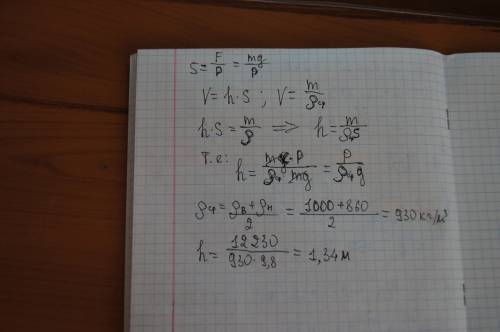 S = F/P = mg/P
V = h·S ; V = m/ρч
h·S = m/ρ ⟹ h = m/ρчS
т.е: h = mg·P/ρч·mg = P/ρчg
ρч = ρв + ρн/2 = 1000+860/2 = 930 кг/м³
h = 12230/930·9,8 = 1,34 м